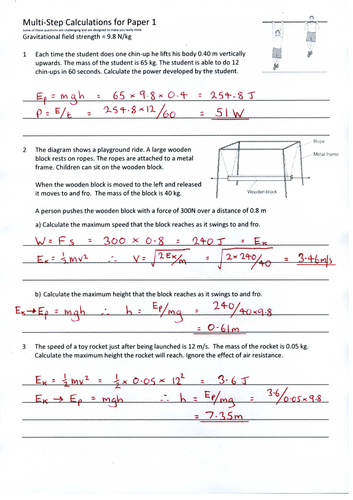 Multi-Step Calculations for Paper 1
Some of these questions are challenging and are designed to make you really think
Gravitational field strength = 9.8 N/kg
1 Each time the student does one chin-up he lifts his body 0.40 m vertically
upwards. The mass of the student is 65 kg. The student is able to do 12
chin-ups in 60 seconds. Calculate the power developed by the student.
Ep = mgh = 65 × 9.8 × 0.4 = 254.8 J
P = E/t = 254.8×12/60 = 51 W
2 The diagram shows a playground ride. A large wooden
block rests on ropes. The ropes are attached to a metal
frame. Children can sit on the wooden block.
Rope
Metal frame
Wooden block
When the wooden block is moved to the left and released
it moves to and fro. The mass of the block is 40 kg.
A person pushes the wooden block with a force of 300N over a distance of 0.8 m
a) Calculate the maximum speed that the block reaches as it swings to and fro.
W = Fs = 300 × 0.8 = 240 J = Ek
Ek = ½mv² ∴ V = √2Ek/m = √2×240/40 = 3.46m/s
b) Calculate the maximum height that the block reaches as it swings to and fro.
Ek → Ep = mgh ∴ h = Ep/mg = 240/40×9.8
= 0.61m
3 The speed of a toy rocket just after being launched is 12 m/s. The mass of the rocket is 0.05 kg.
Calculate the maximum height the rocket will reach. Ignore the effect of air resistance.
Ek = ½mv² = ½ × 0.05 × 12² = 3.6 J
Ek → Ep = mgh ∴ h = Ep/mg = 3.6/0.05×9.8
= 7.35m